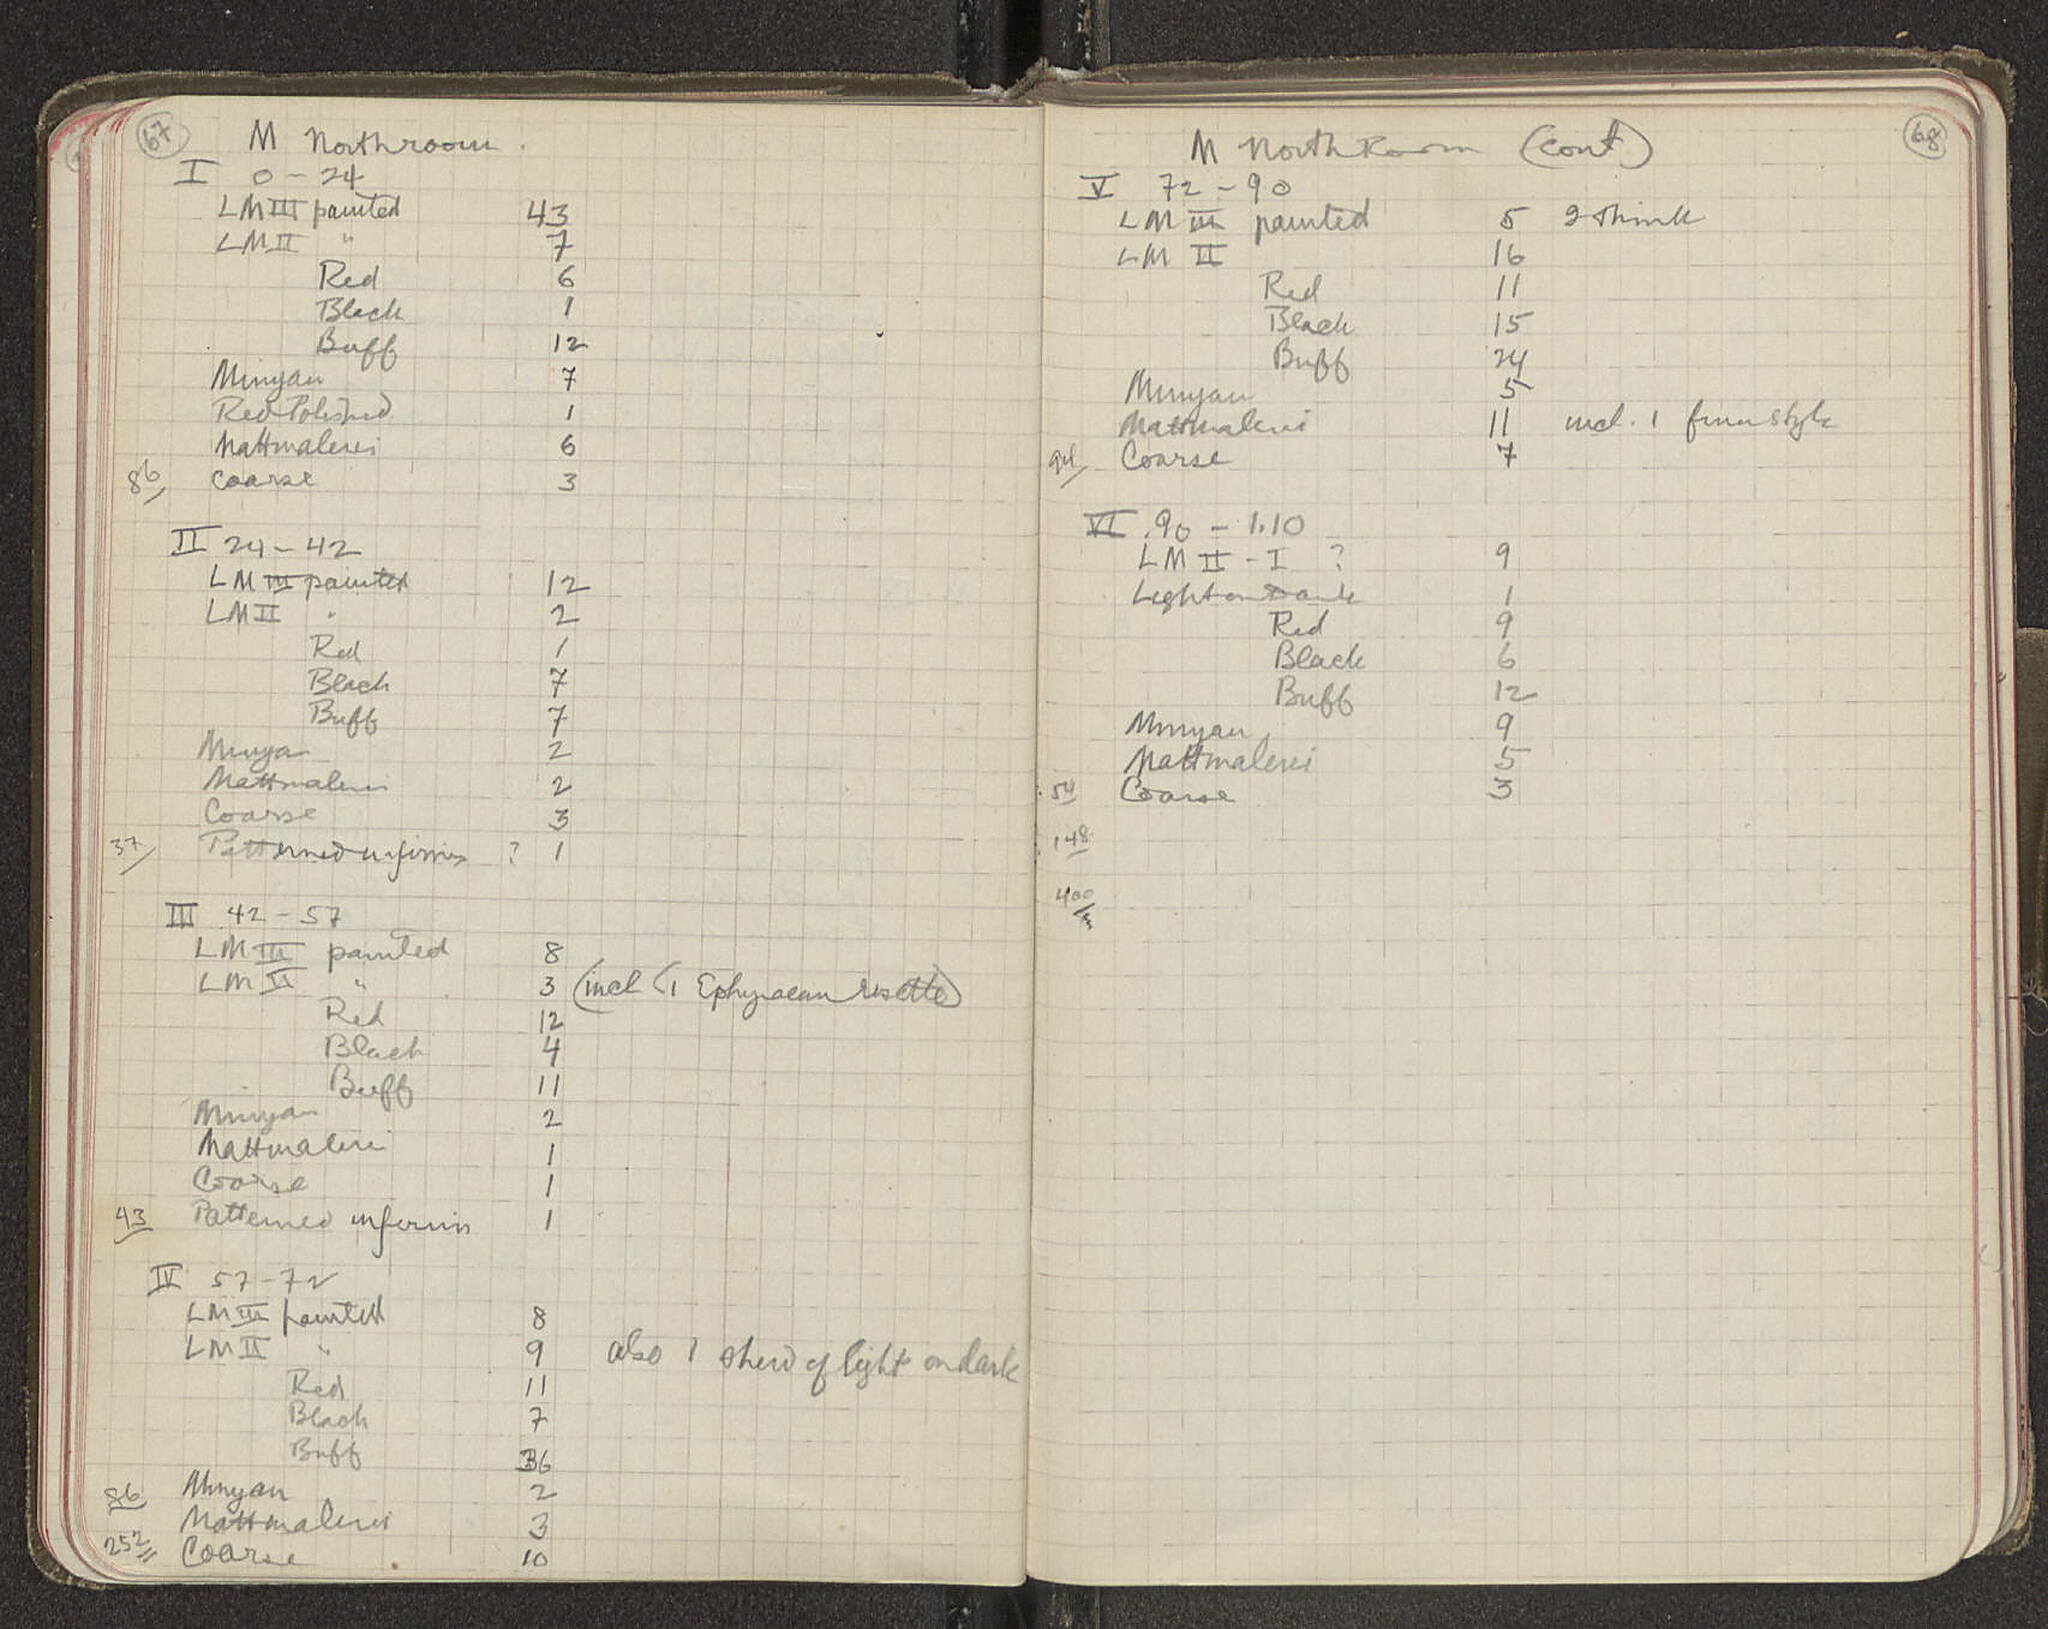 67
M Northroom.
I 0-24
LM III painted 43
LM II " 7
Red 6
Black 1
Buff 12
Minyan 7
Red Polished 1
Mattmalerei 6
86 Coarse 3
II 24-42
LM III painted 12
LM II " 2
Red 1
Black 7
Buff 7
Minyan 2
Mattmalerei 2
Coarse 3
37 Patterned urfirnis ? 1
III 42-57
LM III painted 8
LM II " 3 (incl (1 Ephyraean rosette)
Red 12
Black 4
Buff 11
Minyan 2
Mattmalerei 1
Coarse 1
43 Patterned urfirnis 1
IV 57-72
LM III painted 8
LM II " 9 also 1 sherd of light on dark
Red 11
Black 7
Buff 36
86 Minyan 2
Mattmalerei 3
252 Coarse 10
68
M North Room (cont)
V 72-90
LM III painted 5 I think
LM II 16
Red 11
Black 15
Buff 24
Minyan 5
Mattmalerei 11 incl. 1 finer style
94 Coarse 7
VI .90-1.10
LM II-I ? 9
Light on Dark 1
Red 9
Black 6
Buff 12
Minyan 9
Mattmalerei 5
54 Coarse 3
148
400